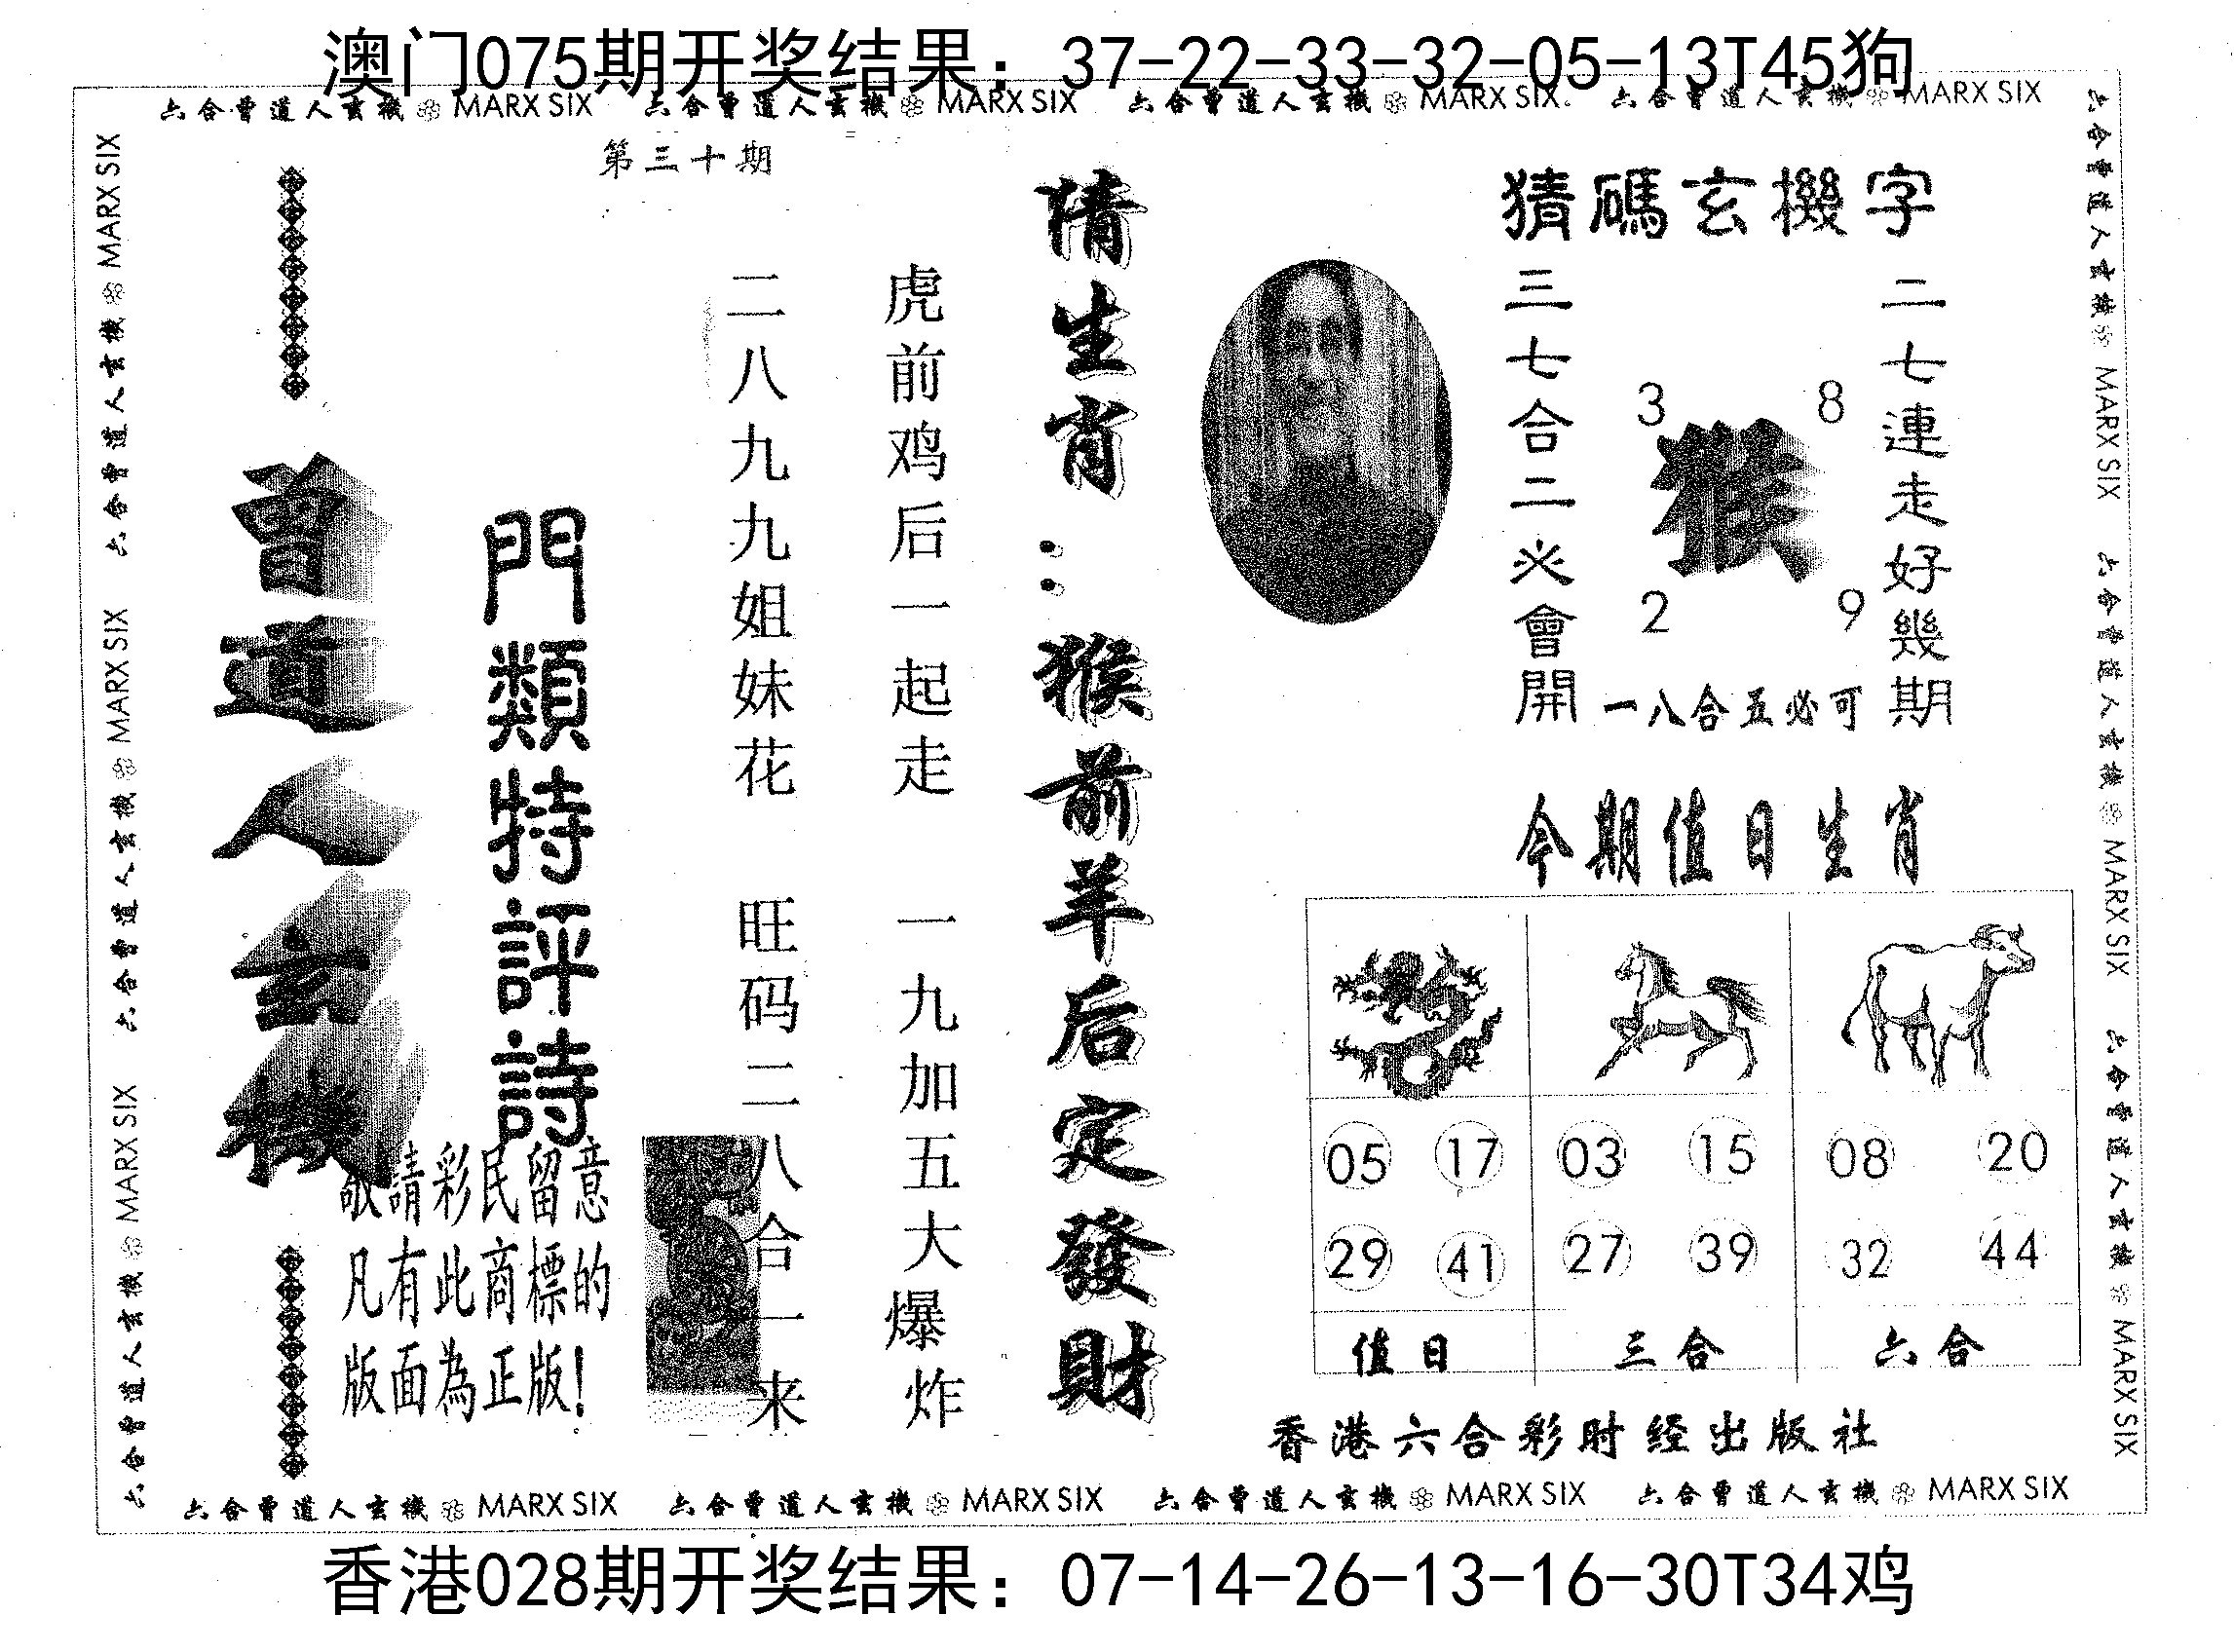 澳门075期开奖结果：37-22-33-32-05-13T45狗
六合曾道人玄機 MARX SIX 六合曾道人玄機 MARX SIX 六合曾道人玄機 MARX SIX 六合曾道人玄機 MARX SIX
第三十期
猜碼玄機字
二七連走好幾期
3 8
猴
2 9
三七合二必會開
一八合五必可
猜生肖：猴前羊后定發財
虎前鸡后一起走 一九加五大爆炸
二八九九姐妹花 旺码二八合一来
門類特評詩
曾道人玄機
敬請彩民留意
凡有此商標的
版面為正版！
今期值日生肖
05 17 03 15 08 20
29 41 27 39 32 44
值日 三合 六合
香港六合彩时经出版社
六合曾道人玄機 MARX SIX 六合曾道人玄機 MARX SIX 六合曾道人玄機 MARX SIX
六合曾道人玄機 MARX SIX 六合曾道人玄機 MARX SIX 六合曾道人玄機 MARX SIX
六合曾道人玄機 MARX SIX 六合曾道人玄機 MARX SIX 六合曾道人玄機 MARX SIX 六合曾道人玄機 MARX SIX
香港028期开奖结果：07-14-26-13-16-30T34鸡